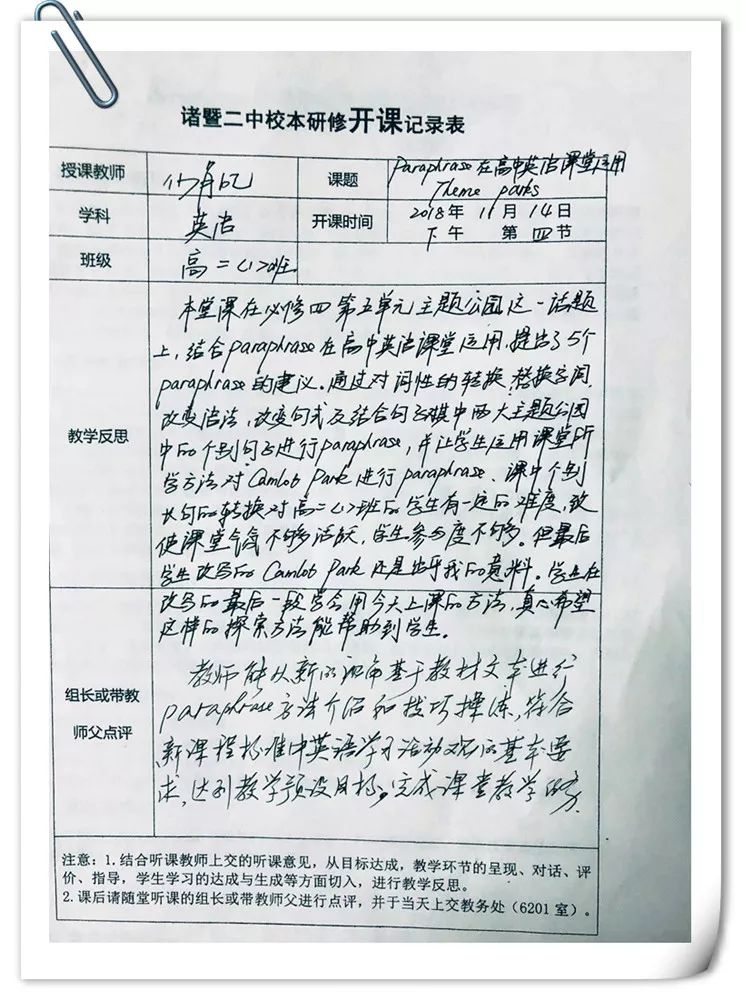 诸暨二中校本研修开课记录表
授课教师
课题 Paraphrase在高中英语课堂运用
Theme parks
学科 英语 开课时间 2018年 11月 14日
下午 第四节
班级 高二(1)班
教学反思
本堂课在必修四第五单元主题公园这一话题
上,结合paraphrase在高中英语课堂运用,提出了5个
paraphrase的建议。通过对词性的转换,替换字词,
改变语法,改变句式及结合句子对其中两大主题公园
中的个别句子进行paraphrase,并让学生运用课堂所
学方法对Camlot Park进行paraphrase、课中个别
长句的转换对高二(1)班的学生有一定的难度,致
使课堂气氛不够活跃,学生参与度不够多。但最后
学生改写的Camlot Park还是出乎我的意料。学生在
改写的最后一段学会用今天上课的方法,真心希望
这样的探索方法能帮助到学生。
组长或带教
师父点评
教师能从新的视角基于教材文本进行
paraphrase方法介绍和技巧操练,符合
新课程标准中英语学习活动观的基本要
求,达到教学预设目标。完成课堂教学任务
注意:1.结合听课教师上交的听课意见,从目标达成,教学环节的呈现、对话、评
价、指导,学生学习的达成与生成等方面切入,进行教学反思。
2.课后请随堂听课的组长或带教师父进行点评,并于当天上交教务处(6201室)。